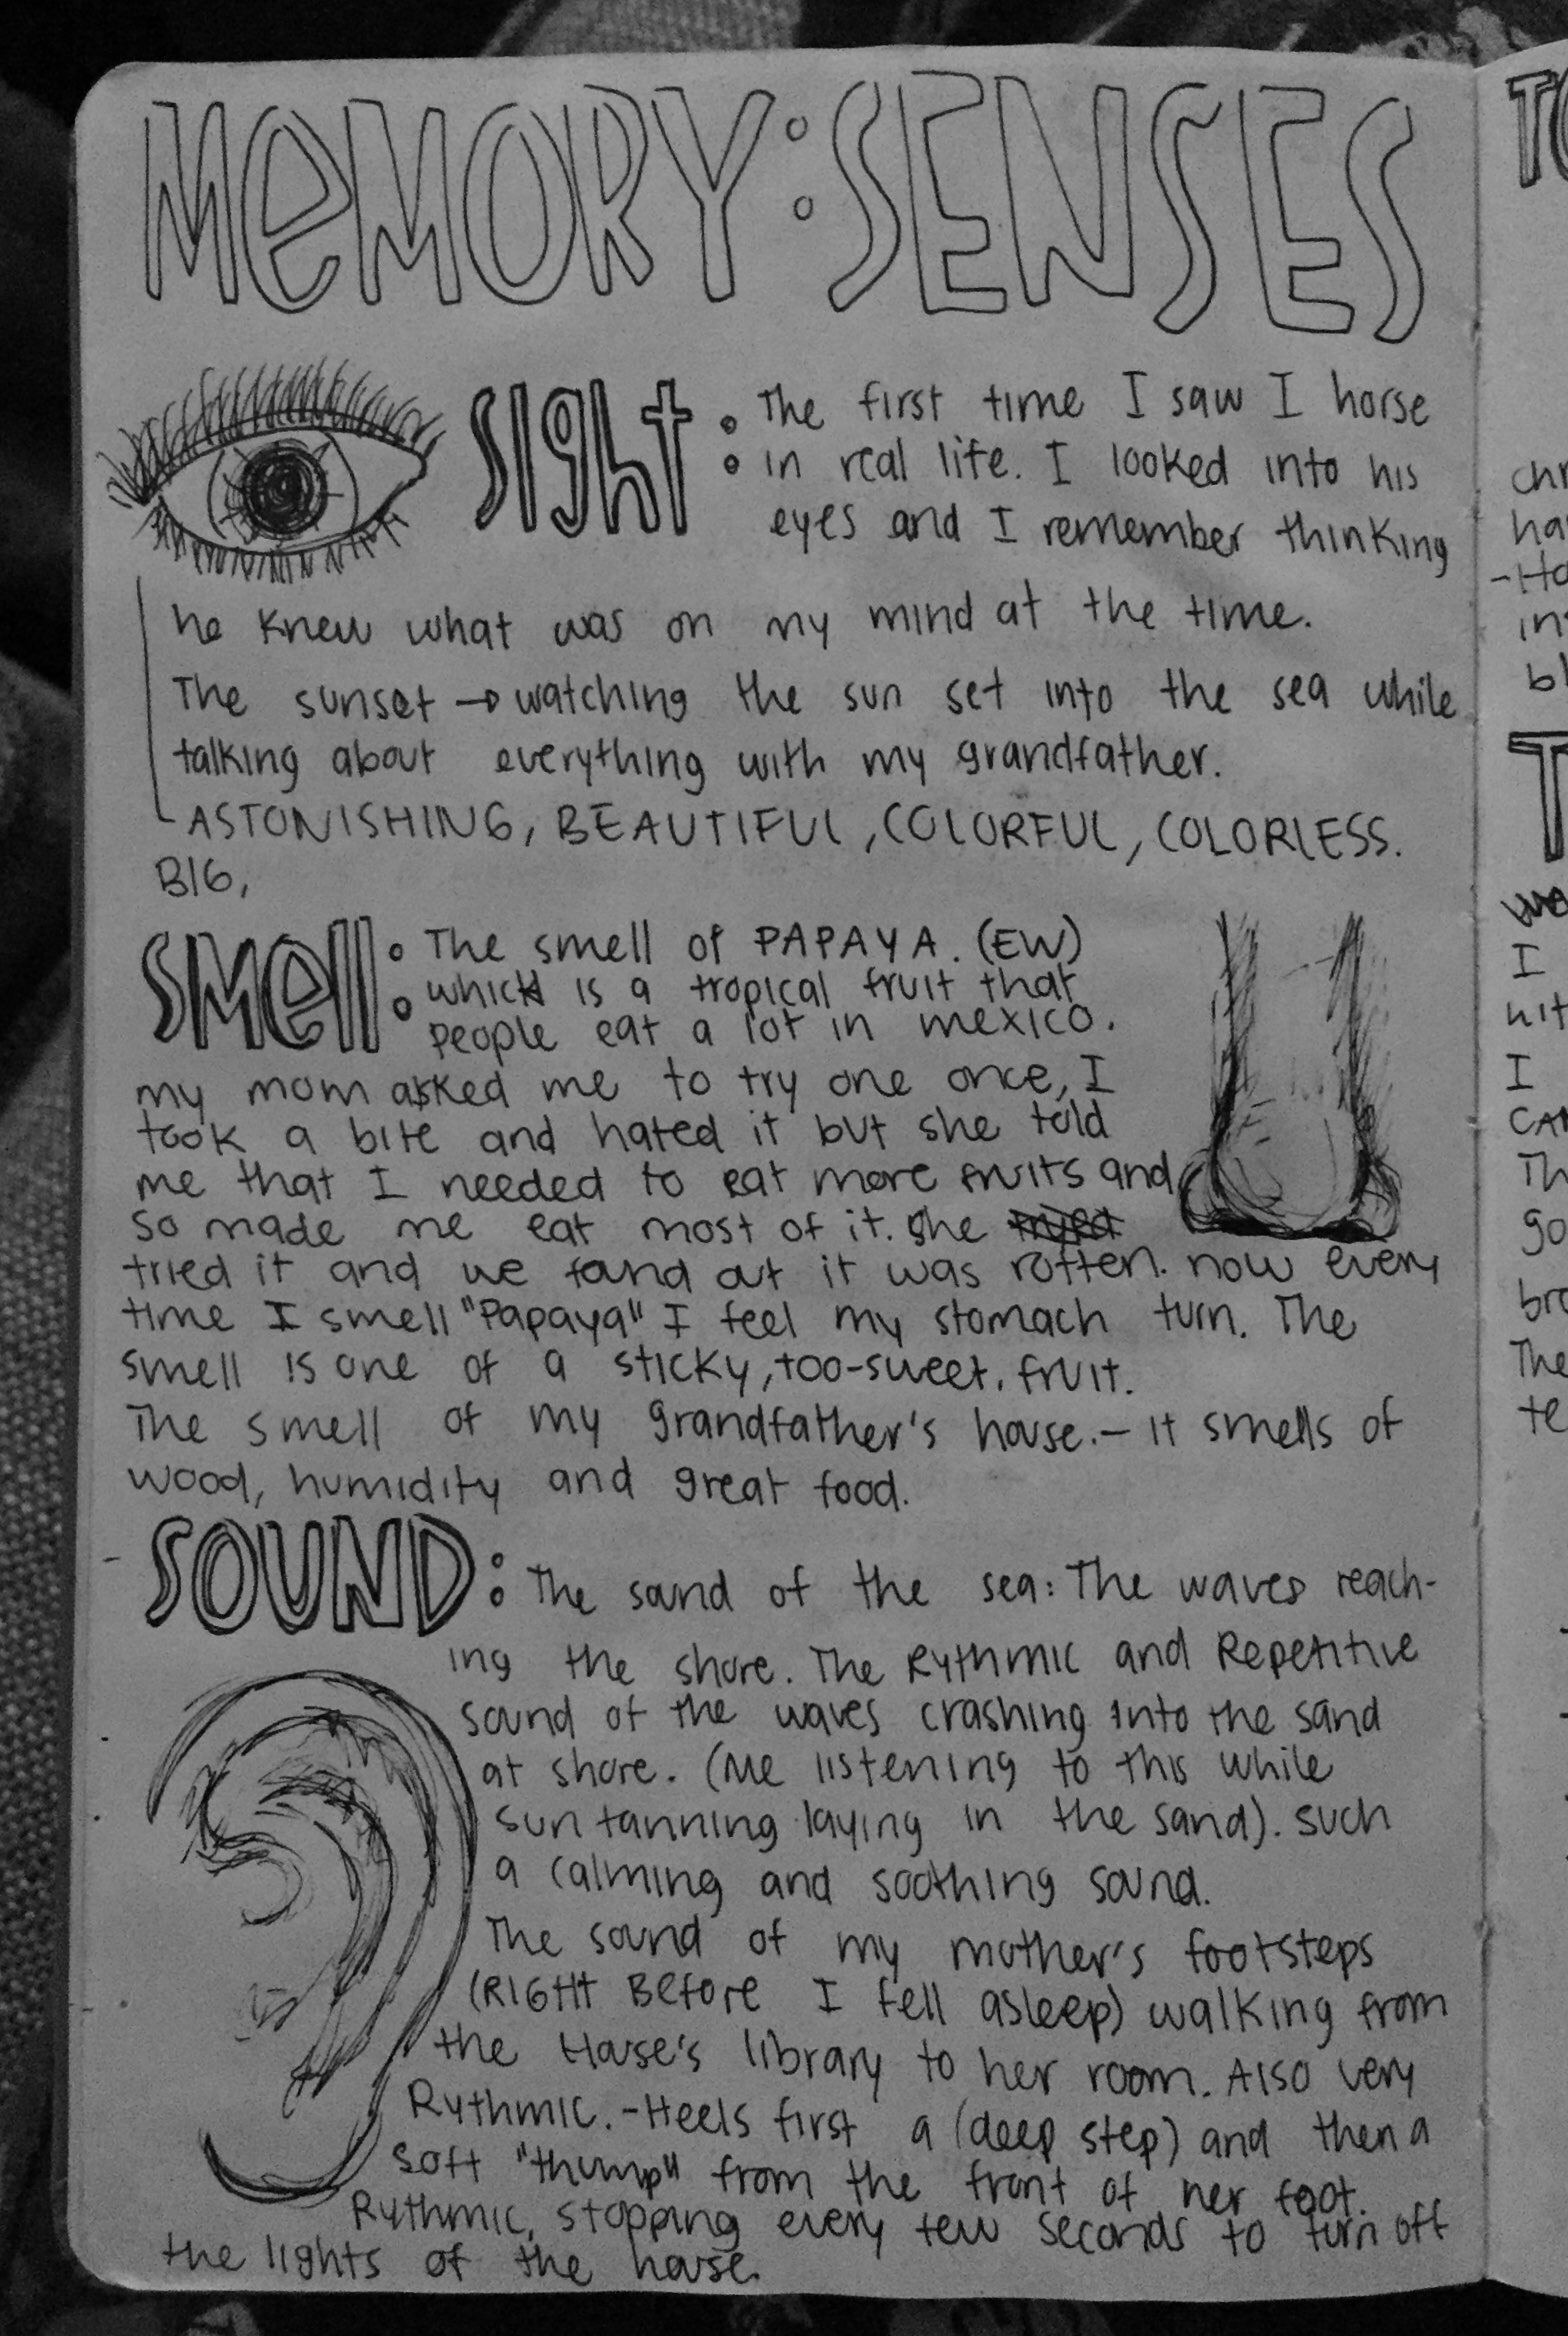 MeMORY: SENSES
Sight: The first time I saw I horse
in real life. I looked into his
eyes and I remember thinking
he knew what was on my mind at the time.
The sunset → watching the sun set into the sea while
talking about everything with my grandfather.
ASTONISHING, BEAUTIFUL, COLORFUL, COLORLESS.
BIG,
Smell: The smell of PAPAYA. (EW)
which is a tropical fruit that
people eat a lot in mexico.
my mom asked me to try one once, I
took a bite and hated it but she told
me that I needed to eat more fruits and
so made me eat most of it. She
tried it and we found out it was rotten. now every
time I smell "Papaya" I feel my stomach turn. The
smell is one of a sticky, too-sweet, fruit.
The smell of my grandfather's house. - it smells of
wood, humidity and great food.
SOUND: The sound of the sea: The waves reach-
ing the shore. The Rythmic and Repetitive
sound of the waves crashing into the sand
at shore. (Me listening to this while
sun tanning laying in the sand). such
a calming and soothing sound.
The sound of my mother's footsteps
(RIGHt Before I fell asleep) walking from
the House's library to her room. Also very
Rythmic. - Heels first a (deep step) and then a
soft "thump" from the front of her foot.
Rythmic, stopping every few seconds to turn off
the lights of the house.
TO
chr
ha
-Ho
in
bl
T
I
hit
I
CAN
Th
go
bro
The
te